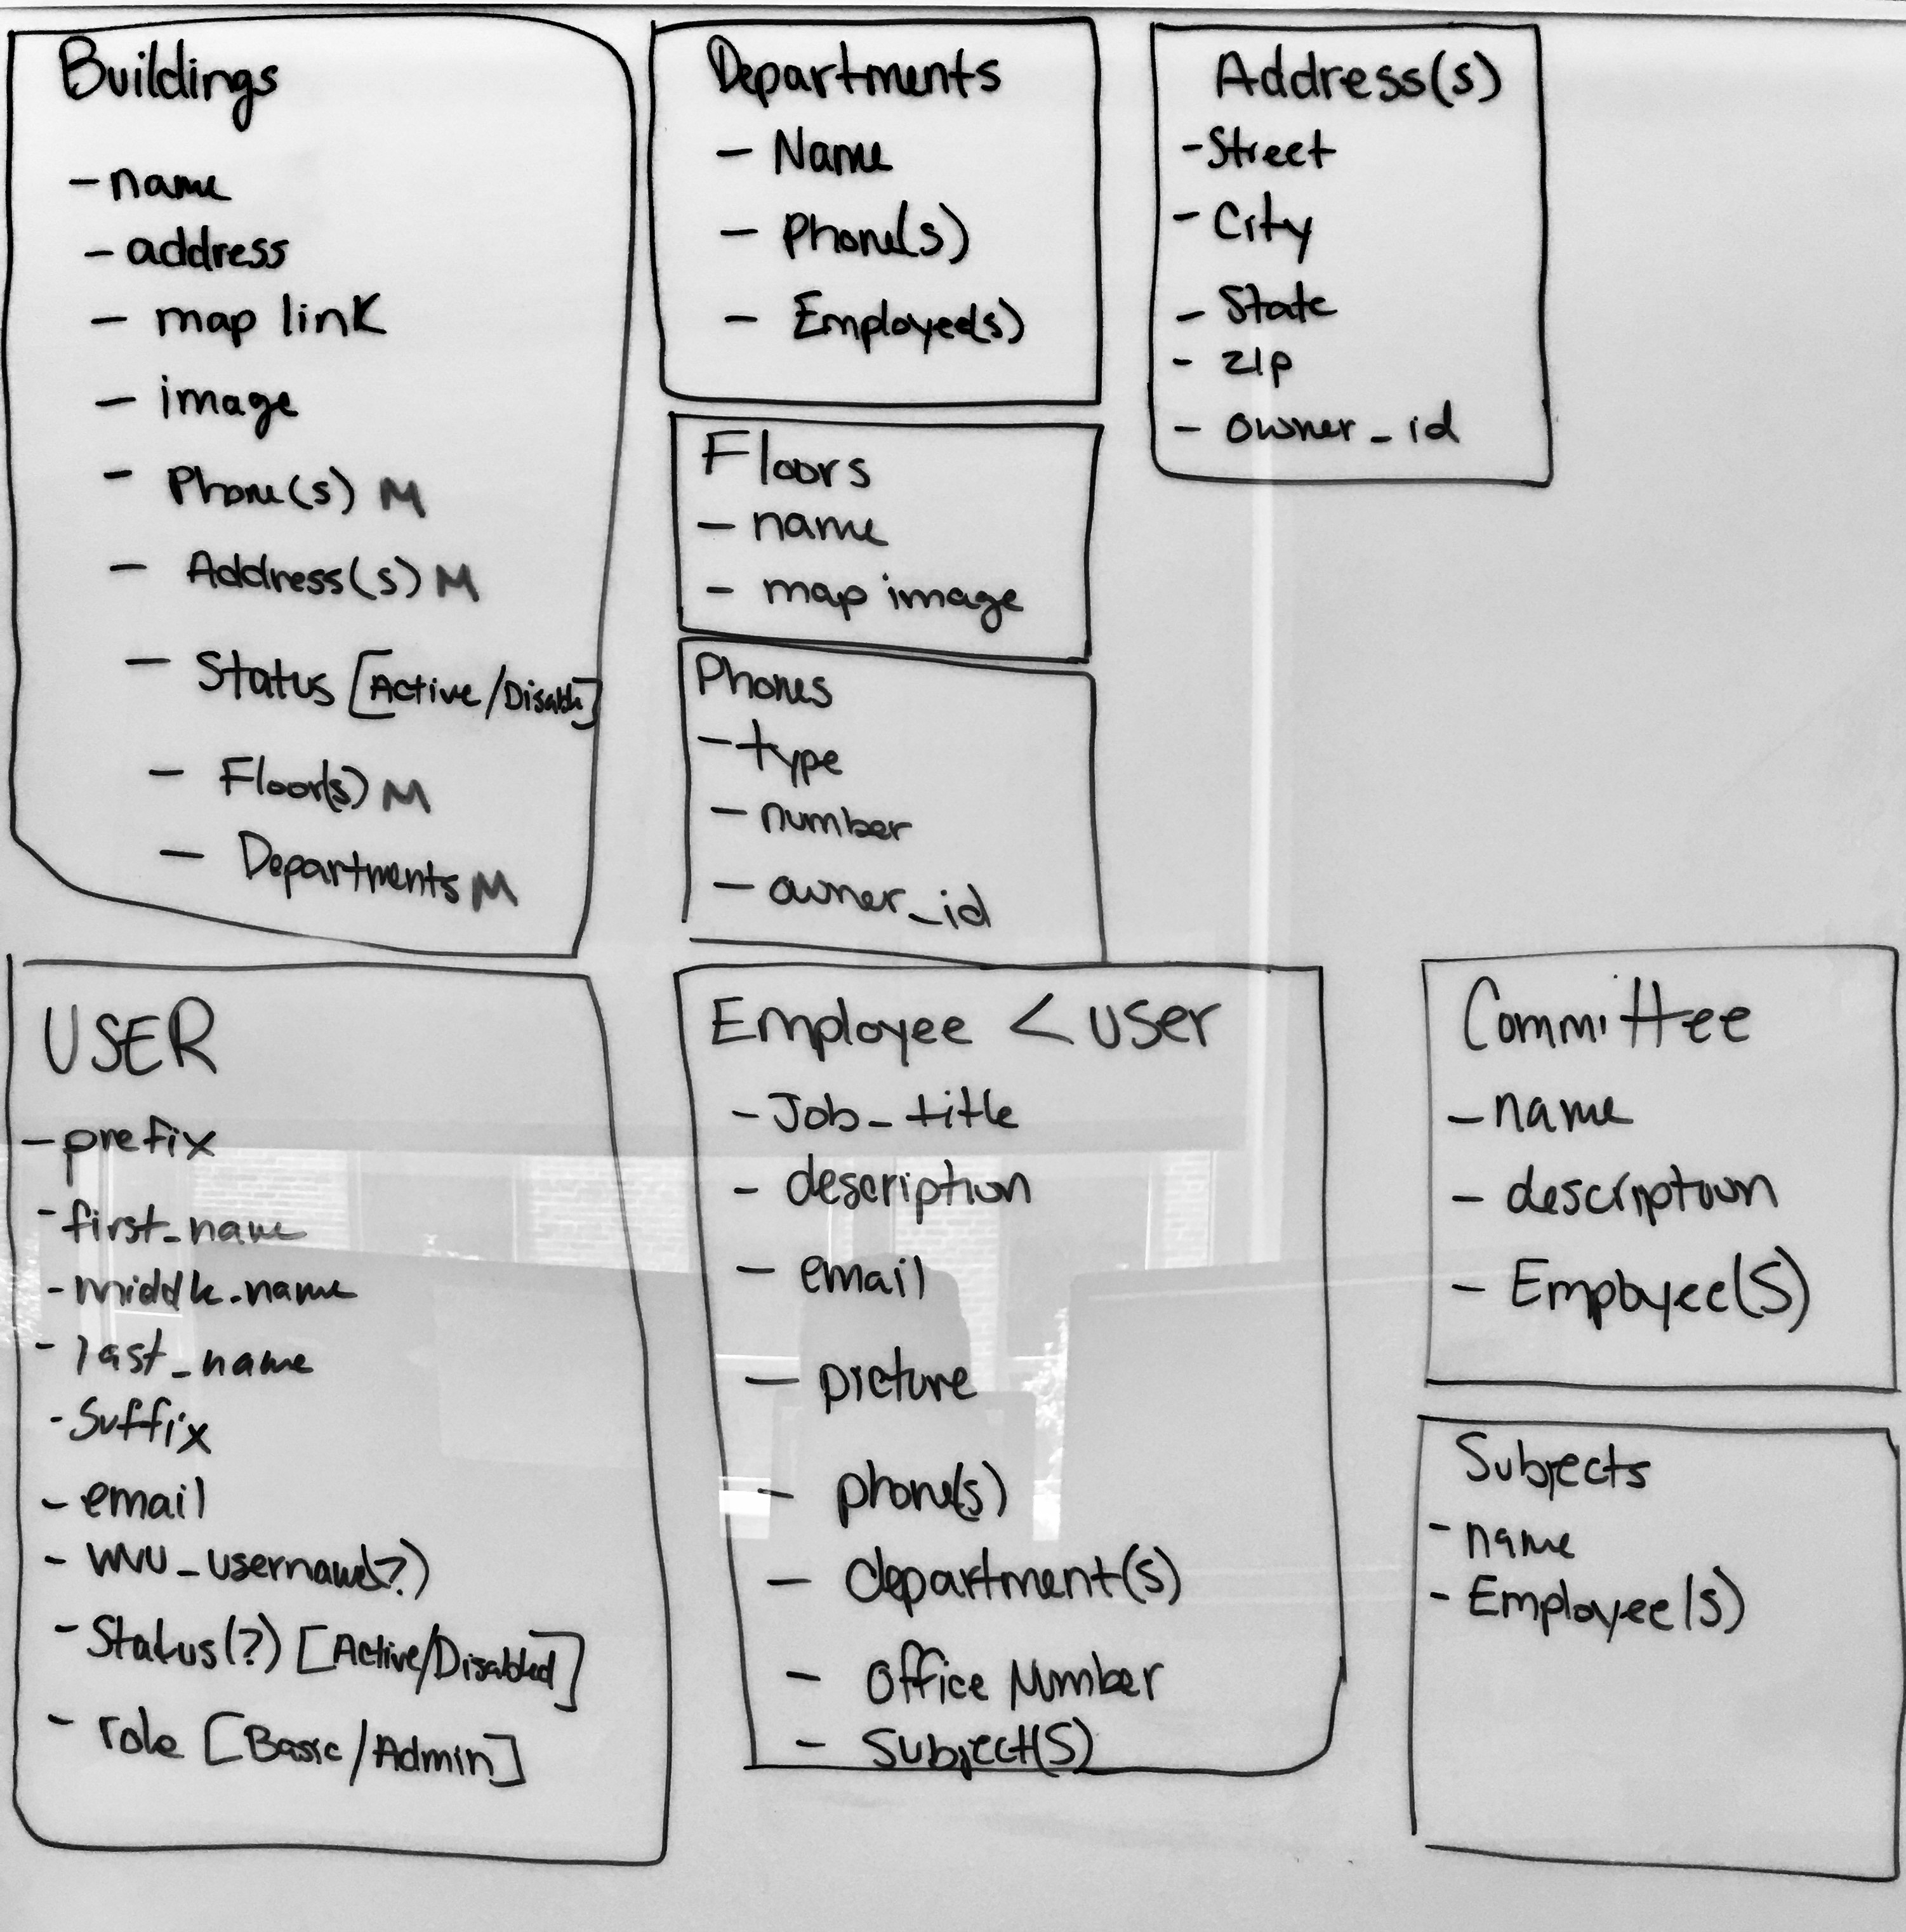 Buildings
- name
- address
- map link
- image
- Phone(s) M
- Address(s) M
- Status [Active/Disable]
- Floor(s) M
- Departments M
Departments
- Name
- Phone(s)
- Employee(s)
Address(s)
- Street
- City
- State
- zip
- owner_id
Floors
- name
- map image
Phones
- type
- number
- owner_id
USER
- prefix
- first_name
- middle_name
- last_name
- Suffix
- email
- WVU_username(?)
- Status(?) [Active/Disabled]
- role [Basic/Admin]
Employee < user
- Job_title
- description
- email
- picture
- phone(s)
- department(s)
- Office Number
- Subject(s)
Committee
- name
- description
- Employee(s)
Subjects
- name
- Employee(s)